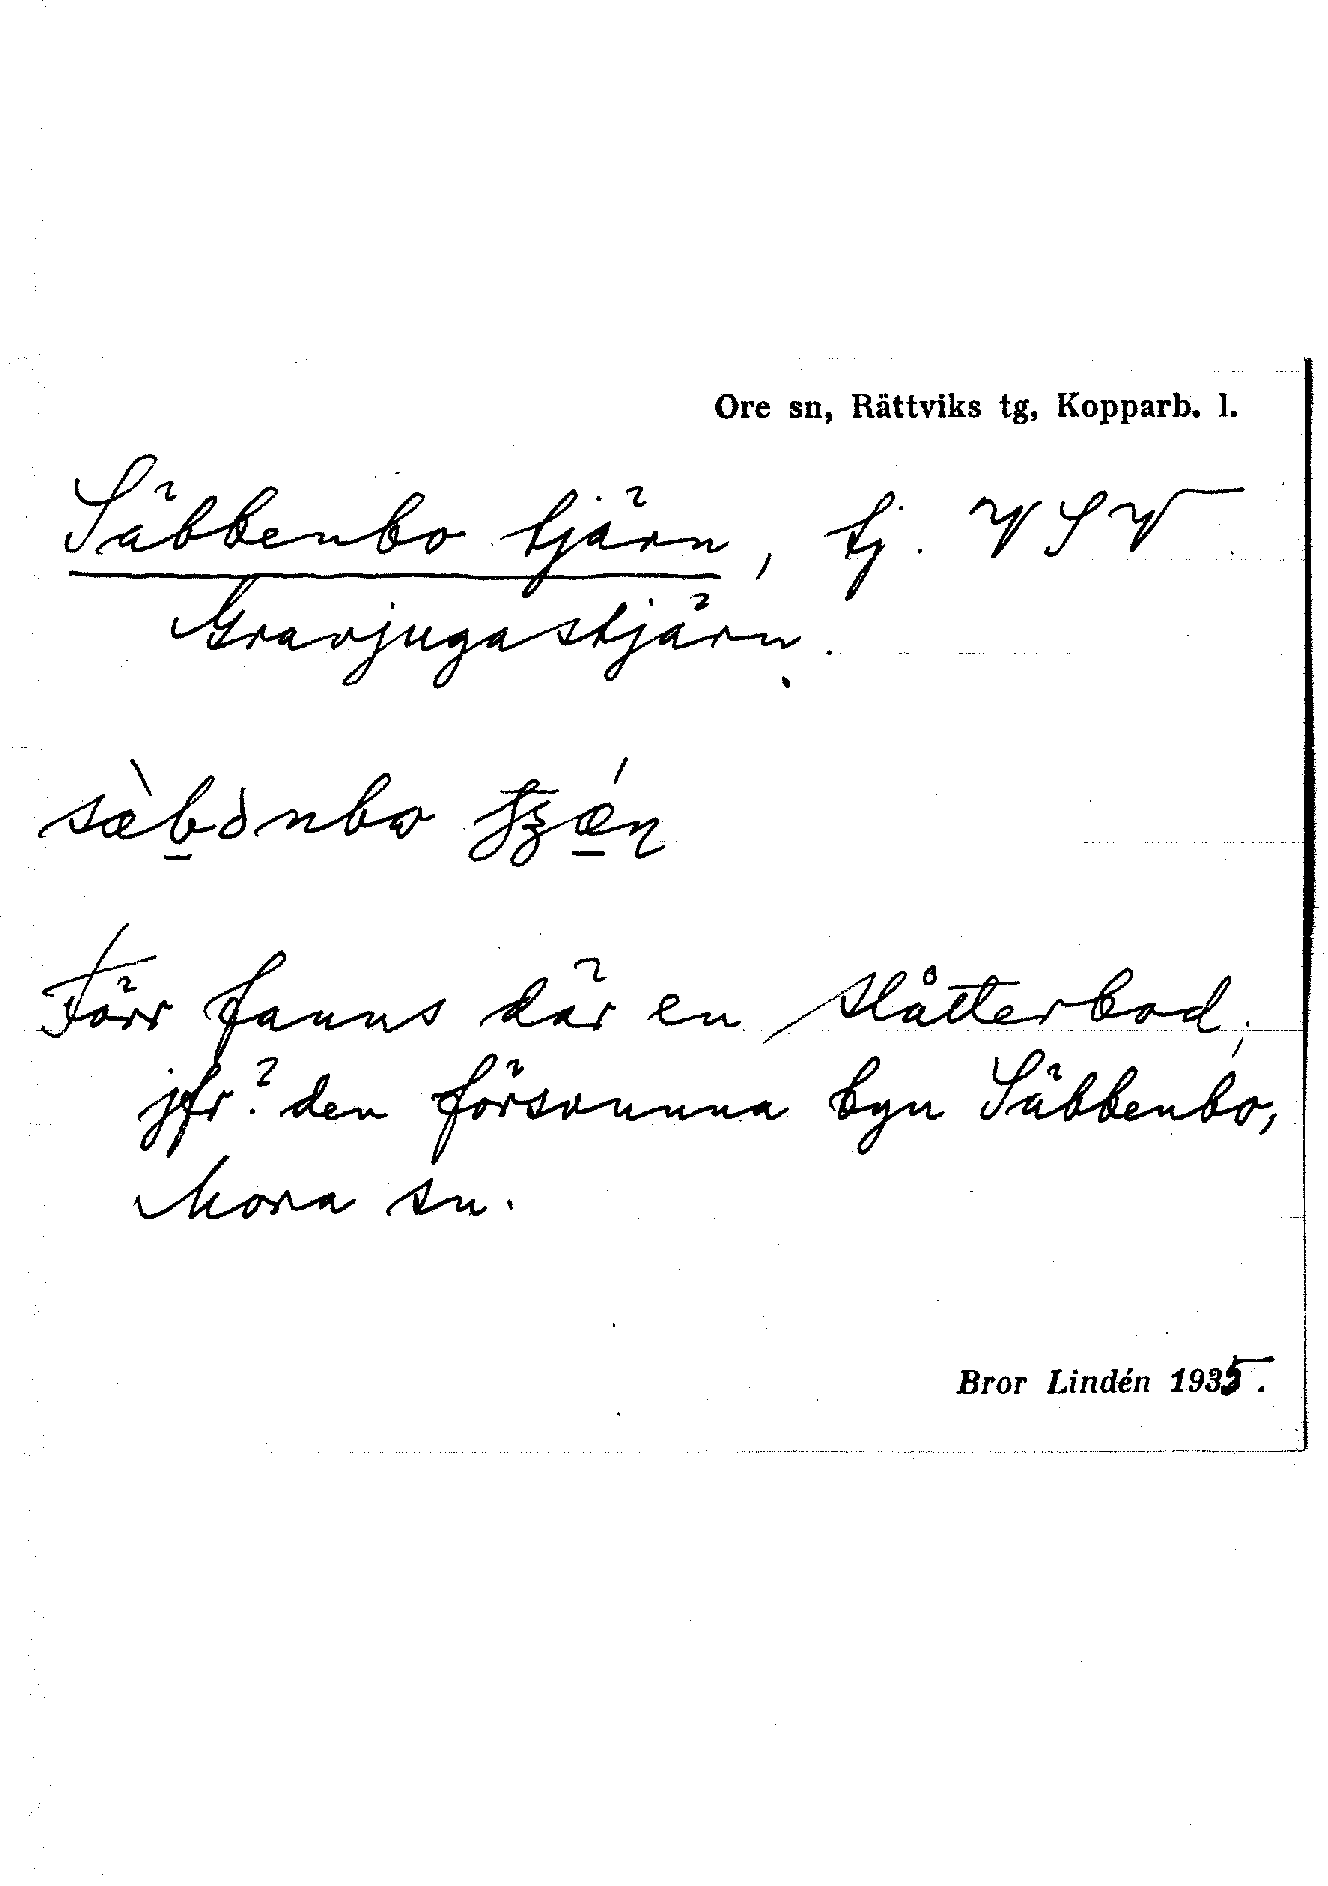 Ore sn, Rättviks tg, Kopparb. l.
Säbbenbo tjärn, tj. VSV
Gravjugastjärn.
Förr fanns där en slåtterbod;
jfr? den försvunna byn Säbbenbo,
Mora sn.
Bror Lindén 1935.